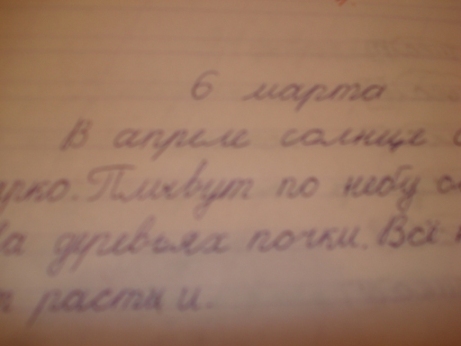 6 марта
В апреле солнце
арко. Плывут по небу об
На деревьях почки. Всё н
т расти и.